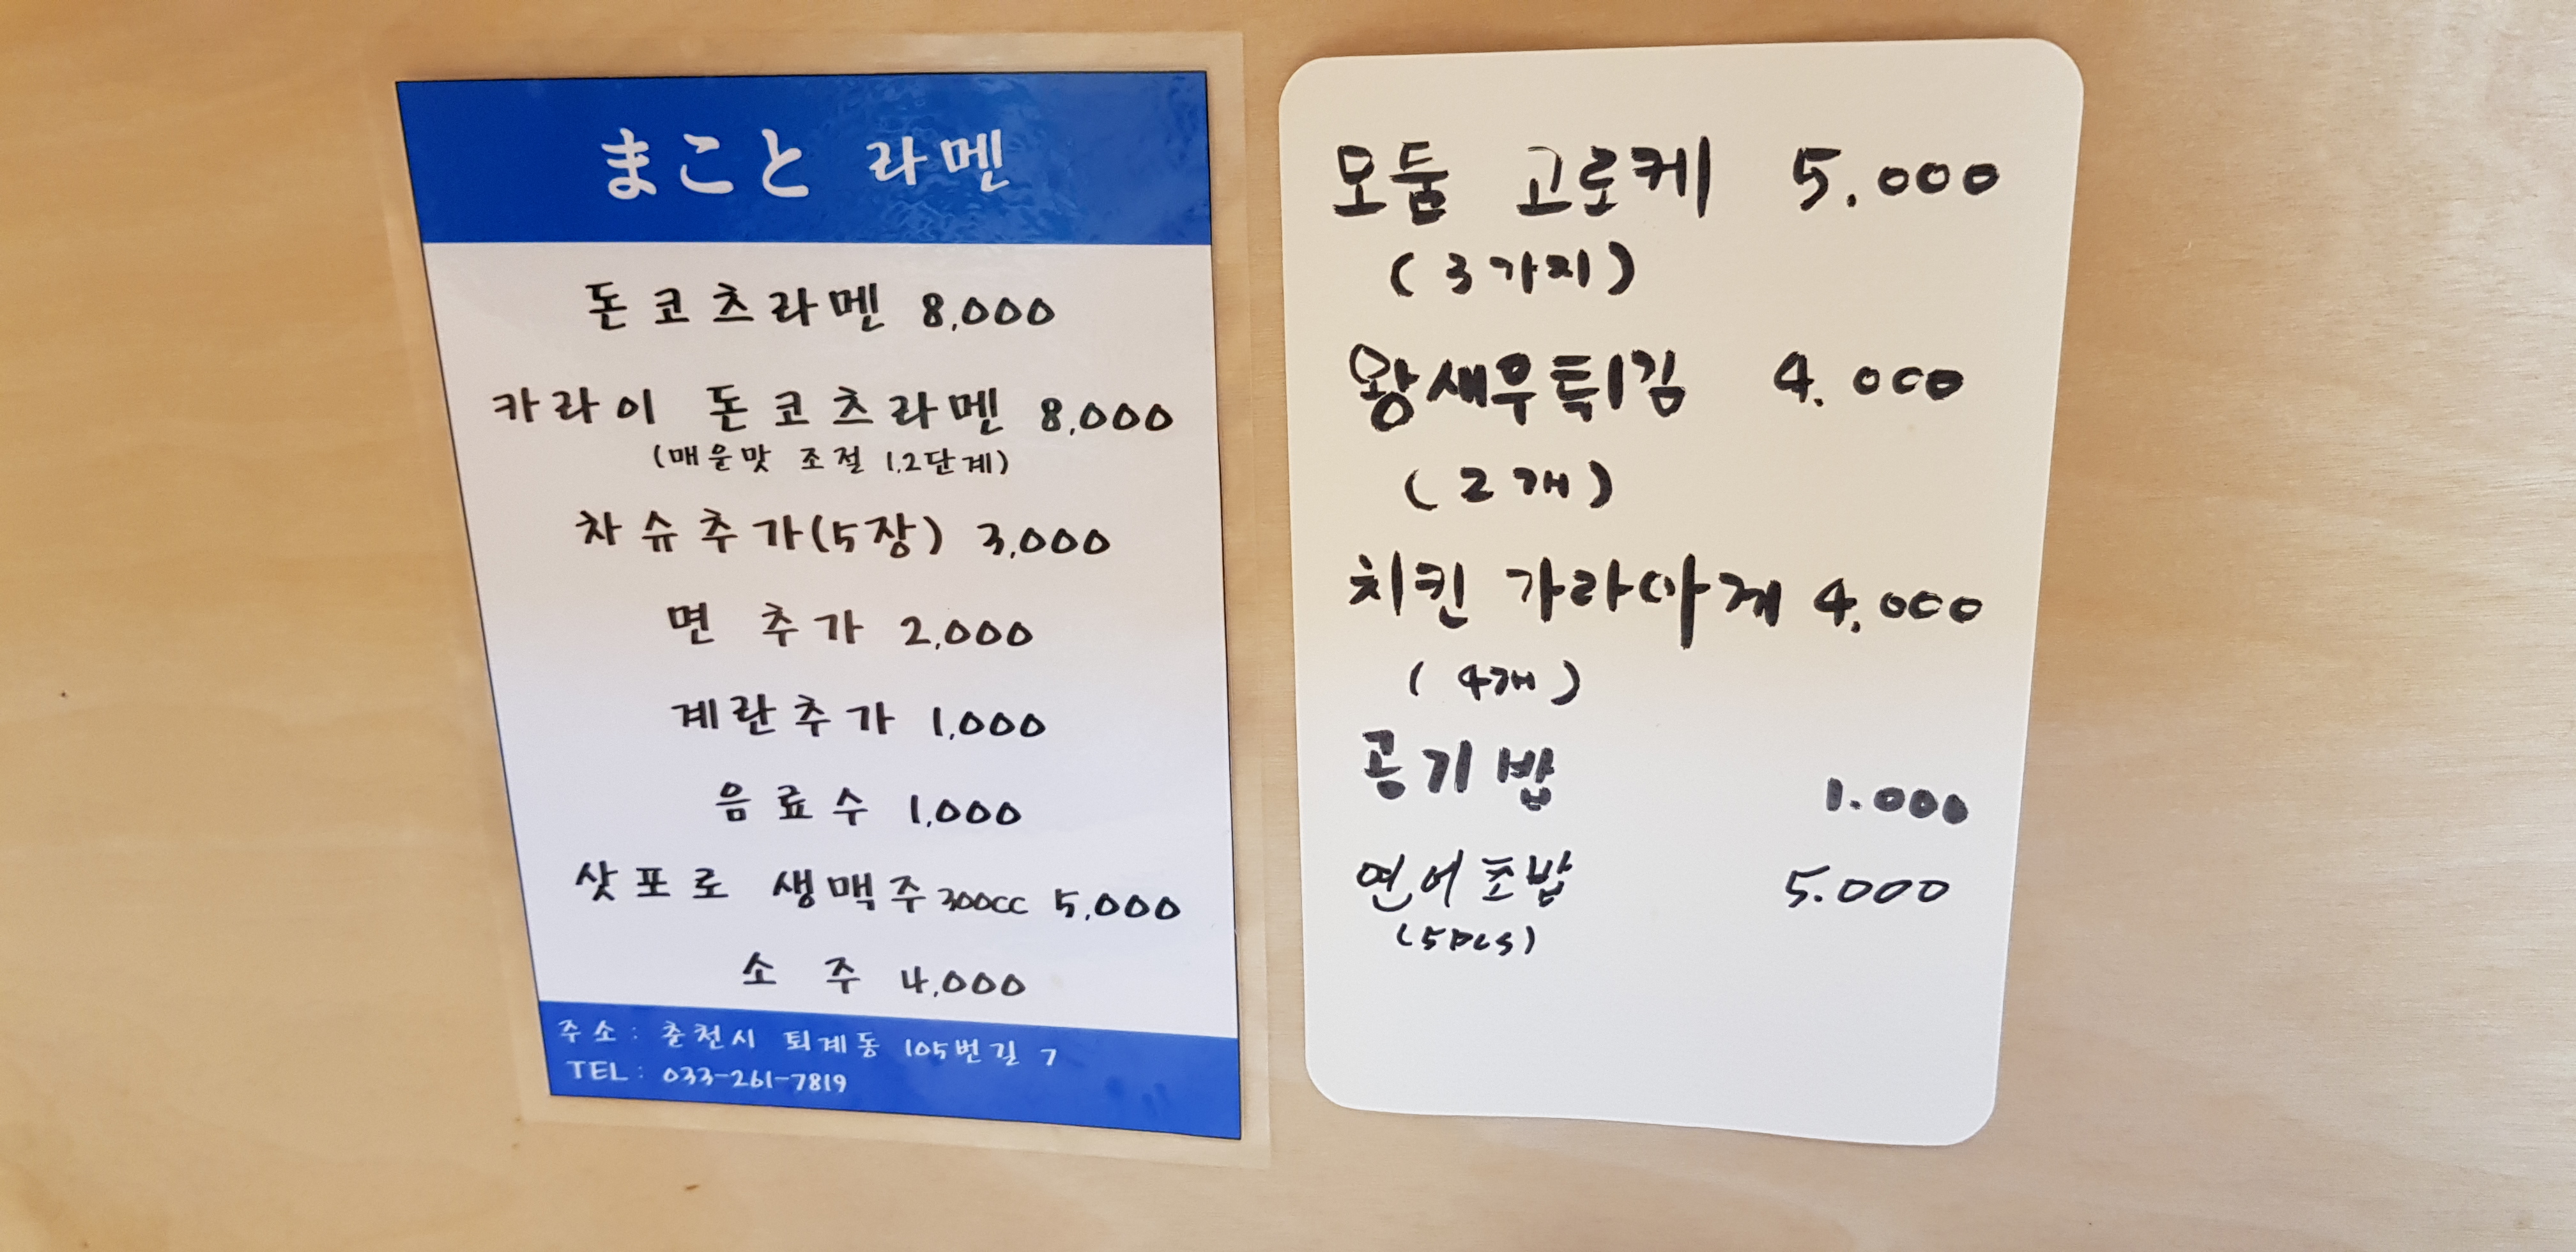 まこと 라멘
돈코츠라멘 8,000
카라이 돈코츠라멘 8,000
(매운맛 조절 1,2단계)
차슈추가(5장) 3,000
면 추가 2,000
계란추가 1,000
음료수 1,000
삿포로 생맥주 300cc 5,000
소 주 4,000
주소: 춘천시 퇴계동 105번길 7
TEL: 033-261-7819
모둠 고로케 5.000
(3가지)
왕새우튀김 4.000
(2개)
치킨 가라아게 4.000
(4개)
공기밥 1.000
연어초밥 5.000
(5pcs)